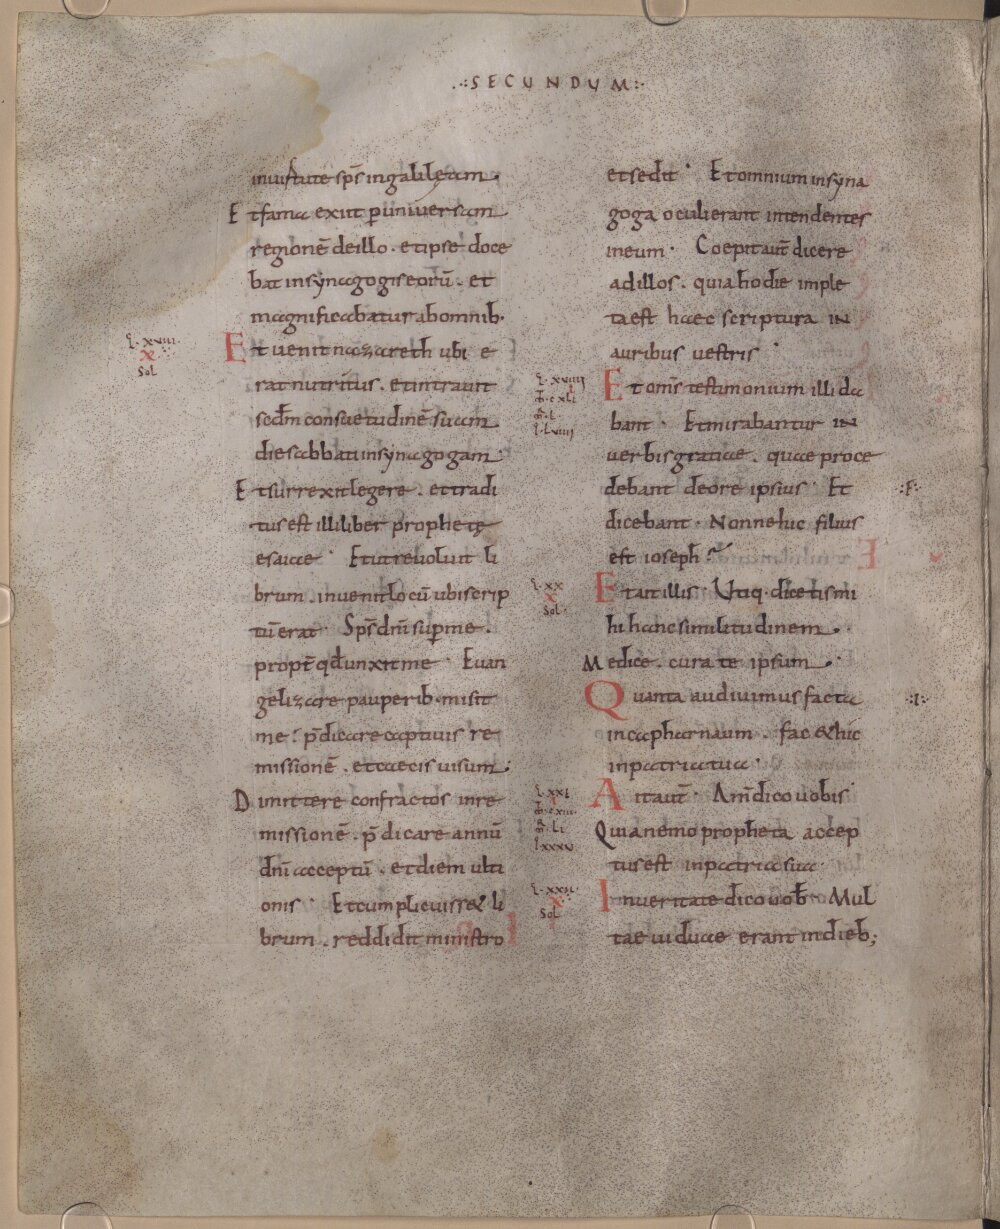 .:SECUNDUM:.
inuirtute sp̄s ingalileam.
Et fama exiit p̱ uniuersam
regionē deillo. et ipse doce
bat insynagogis eorū. et
magnificabatur abomnib·
L·xviii·
x
Sol
Et uenit nazareth ubi e
rat nutritus. et intrauit
secdm̄ consuetudinē suam
die sabbati insynagogam·
Et surrexit legere. et tradi
tus est illi liber prophetę
esaiae· Et ut reuoluit li
brum. inuenit locū ubi scrip
tū erat· Sp̄s dn̄i sup̱me.
propt̄ qd̄ unxit me· Euan
gelizare pauperib· misit
me· p̄dicare captiuis re
missionē. et caecis uisum·
Dimittere confractos inre
missionē. p̄dicare annū
dn̄i acceptū. et diem ulti
onis· Et cum plicuiss& li
brum. reddidit ministro
et sedit· Et omnium insyna
goga oculi erant intendentes
ineum· Coepit aut̄ dicere
ad illos. quia hodie imple
ta est haec scriptura in
auribus uestris·
L·xviiii
m̄·cxli
m̄·l·
i·lviiii
Et om̄s testimonium illi da
bant· Et mirabantur in
uerbis gratiae. quae proce
debant deore ipsius· Et
:F:
dicebant· Nonne hic filius
est ioseph
L·xx
x
Sol·
Et ait illis· Utiq· dicetis mi
hi hanc similitudinem.
Medice. cura te ipsum.
Quanta audiuimus facta
:I:
incapharnaum. fac & hic
inpatria tua·
L·xxi
m̄·cxlii·
m̄·li
lxxxv
Ait aut̄· Am̄ dico uobis
Quia nemo propheta accep
tus est inpatria sua·
L·xxii·
x
Sol·
Inueritate dico uob̄· Mul
tae uiduae erant indieb;